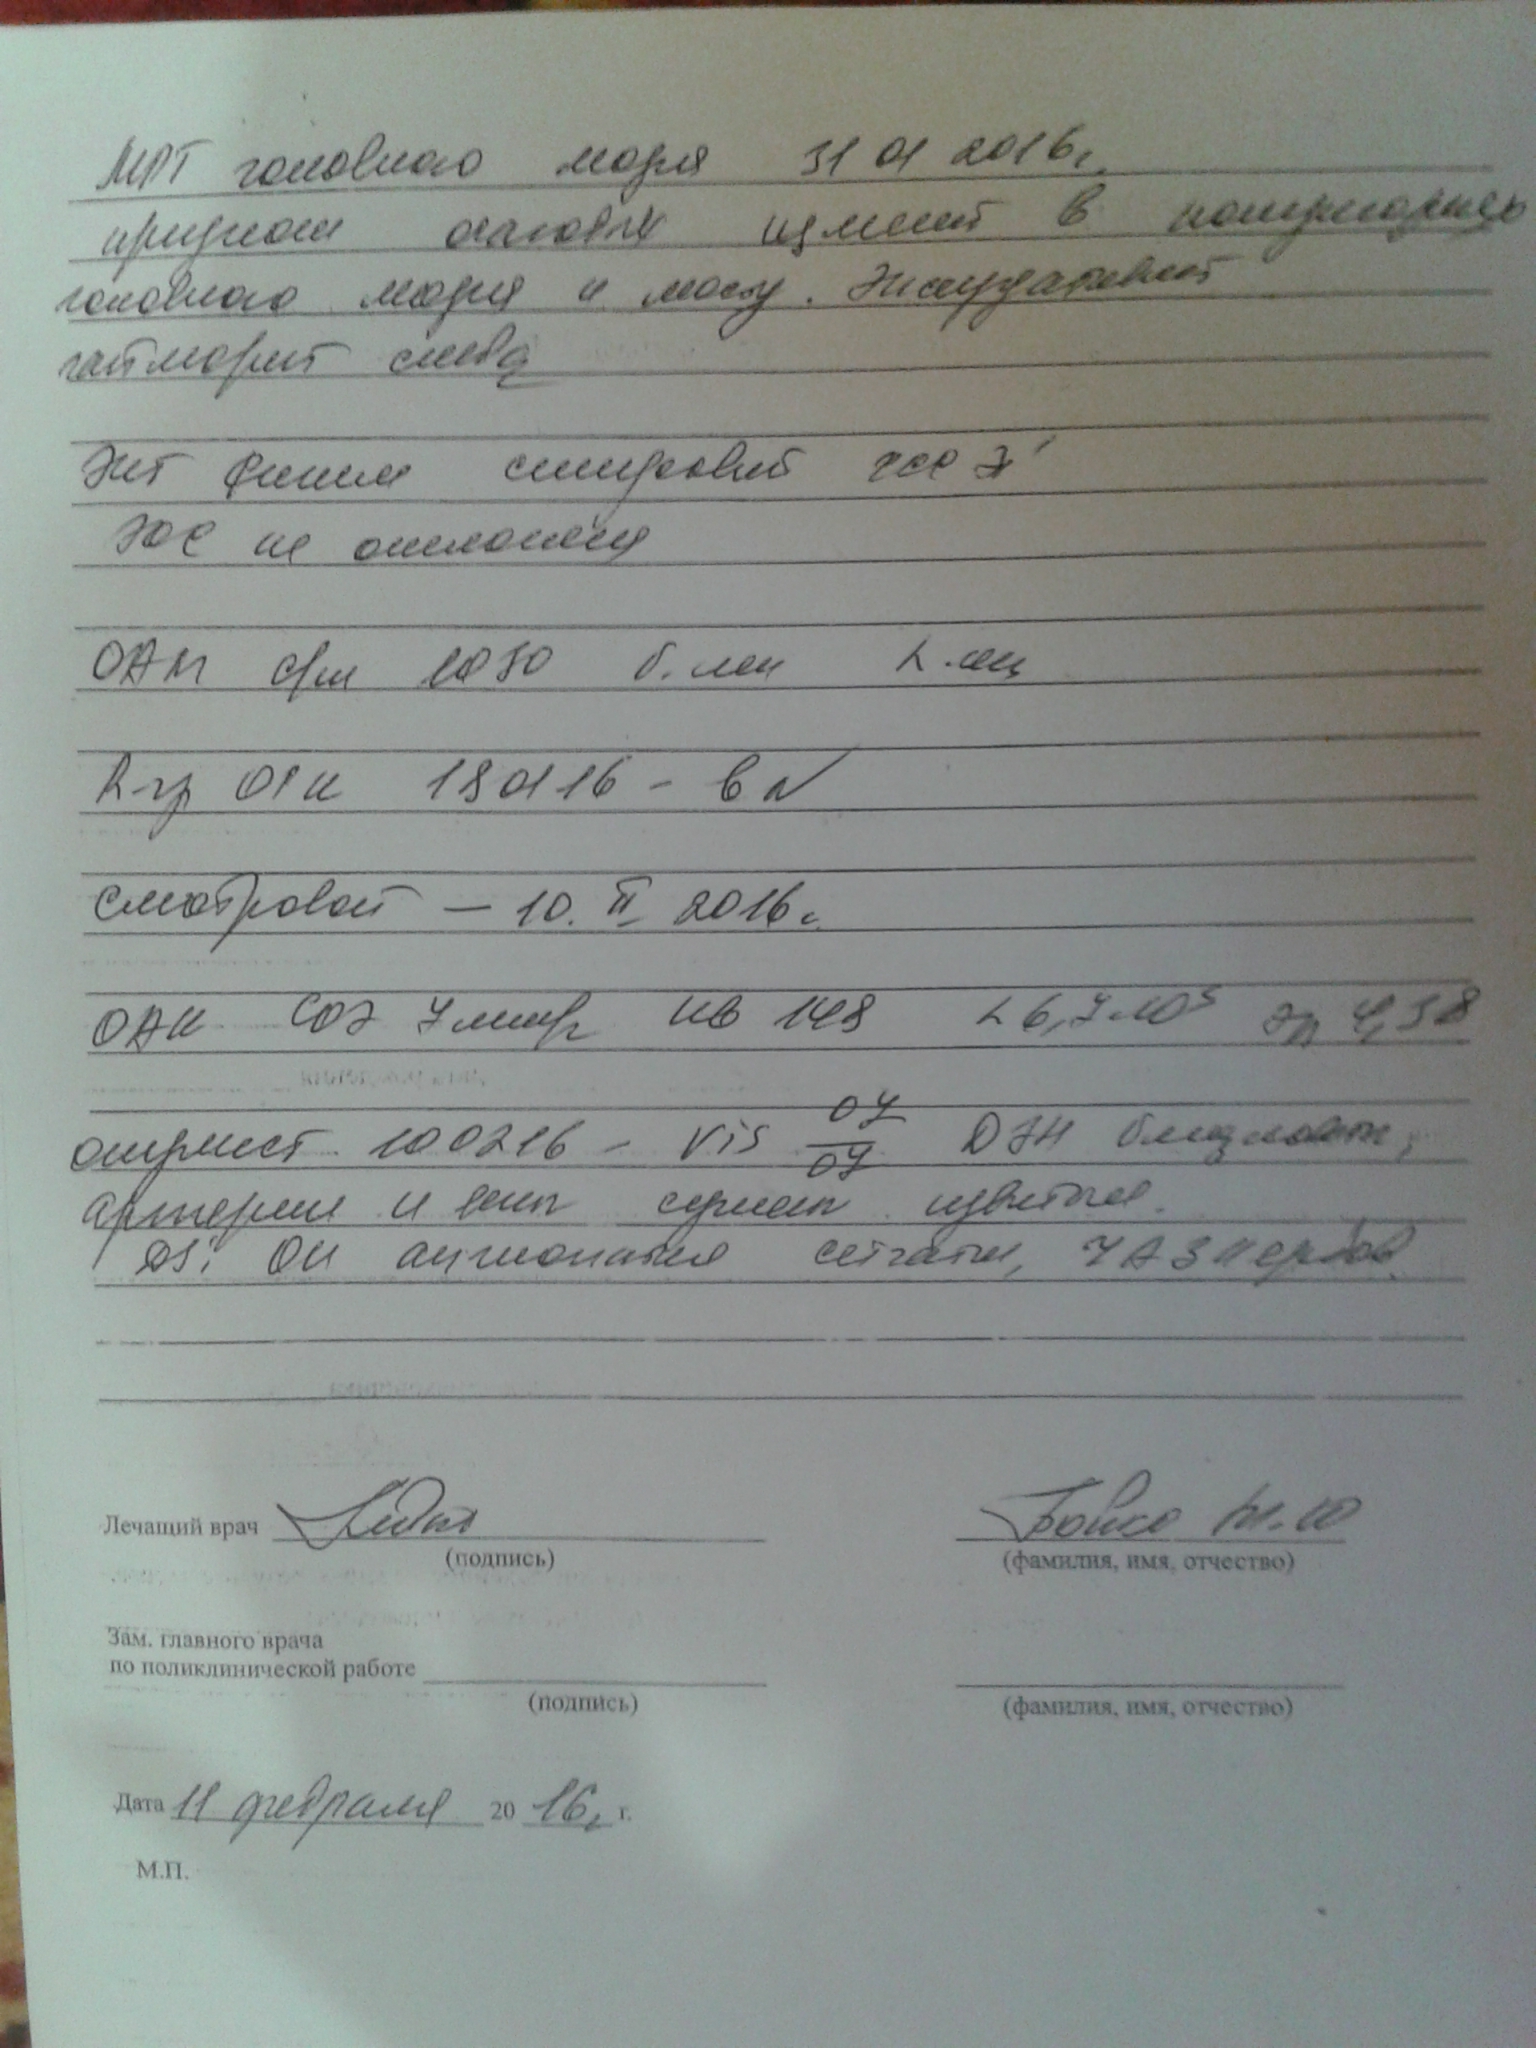 МРТ головного мозга 31 01 2016г.
признаки очаговых измен в полушариях
головного мозга и мосту. Экссудативный
гайморит слева
ЭКГ синусовый ЧСС
ЭОС не отклонена
ОАМ 1030 б. L
R-гр ОГК 180116 - в N
смотровой - 10. II 2016г.
ОАК СОЭ 7 мм/ч Нв 148 L 6,7 эр 4,38
окулист 100216 - Vis 07/07 ДЗН бледноват,
артерии и вены сужены извитые.
DS: ОИ ангиопатия сетчатки, ЧАЗНервов
Лечащий врач Бойко М.Ю
(подпись) (фамилия, имя, отчество)
Зам. главного врача
по поликлинической работе
(подпись) (фамилия, имя, отчество)
Дата 11 февраля 20 16, г.
М.П.